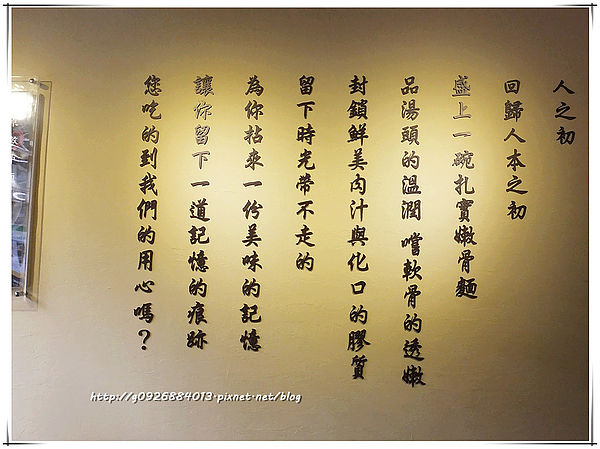 人之初
回歸人本之初
盛上一碗扎實嫩骨麵
品湯頭的溫潤 嚐軟骨的透嫩
封鎖鮮美肉汁與化口的膠質
留下時光帶不走的
為你拈來一份美味的記憶
讓你留下一道記憶的痕跡
您吃的到我們的用心嗎？
http://g0926884013.pixnet.net/blog